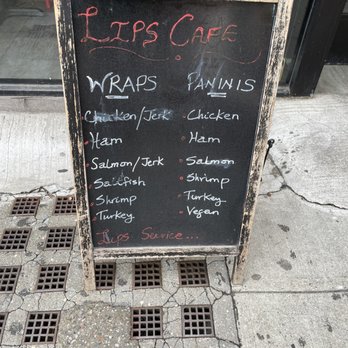 LIPS CAFE
WRAPS
Chicken/Jerk
Ham
Salmon/Jerk
Saltfish
Shrimp
Turkey
PANINIS
Chicken
Ham
Salmon
Shrimp
Turkey
Vegan
Lips Service...